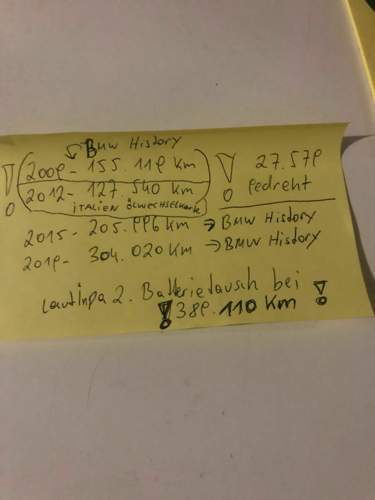 BMW History
2009 - 155 119 Km
2012 - 127 540 km
iTALiEN ölwechselmark
! 27.579
! gedreht
2015 - 205.996 km → BMW History
2019 - 304.020 KM → BMW History
Laut inpa 2. Batterietausch bei !
! 389.110 Km